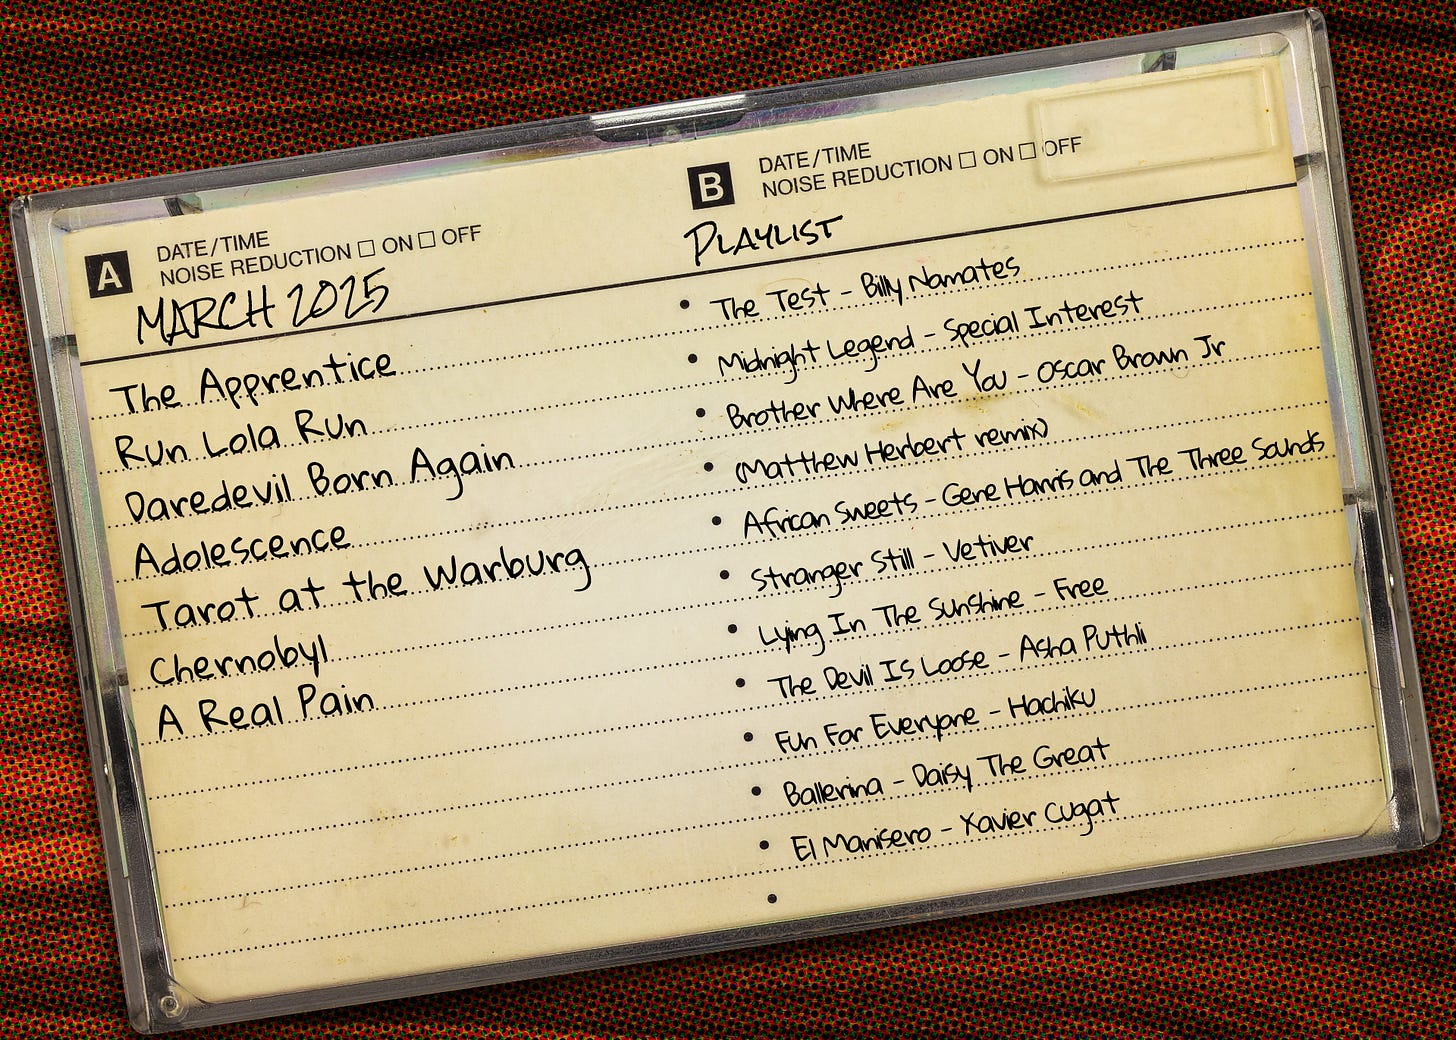 A
DATE/TIME
NOISE REDUCTION ☐ ON ☐ OFF
MARCH 2025
The Apprentice
Run Lola Run
Daredevil Born Again
Adolescence
Tarot at the Warburg
Chernobyl
A Real Pain
B
DATE/TIME
NOISE REDUCTION ☐ ON ☐ OFF
PLAYLIST
• The Test - Billy Nomates
• Midnight Legend - Special Interest
• Brother Where Are You - Oscar Brown Jr
• (Matthew Herbert remix)
• African Sweets - Gene Harris and The Three Sounds
• Stranger Still - Vetiver
• Lying In The Sunshine - Free
• The Devil Is Loose - Asha Puthli
• Fun For Everyone - Hachiku
• Ballerina - Daisy The Great
• El Manisero - Xavier Cugat
•